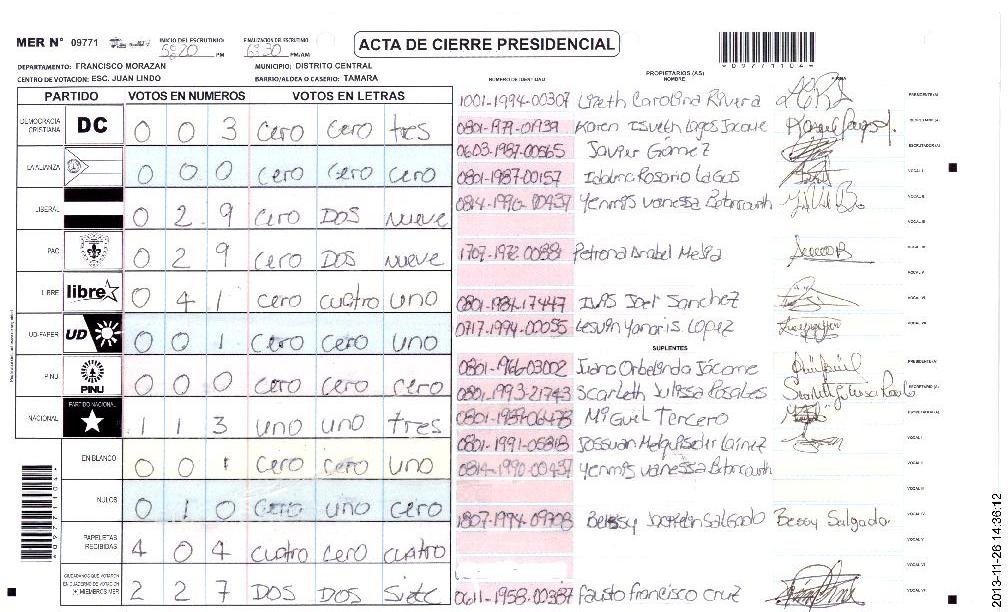 MER N° 09771 INICIO DEL ESCRUTINIO 5:20 PM FINALIZACION DEL ESCRUTINIO 6:30 PM/AM
ACTA DE CIERRE PRESIDENCIAL
*09771104*
DEPARTAMENTO: FRANCISCO MORAZAN MUNICIPIO: DISTRITO CENTRAL
CENTRO DE VOTACION: ESC. JUAN LINDO BARRIO/ALDEA O CASERIO: TAMARA
PARTIDO VOTOS EN NUMEROS VOTOS EN LETRAS
DEMOCRACIA CRISTIANA DC 0 0 3 cero cero tres
LA ALIANZA 0 0 0 cero cero cero
LIBERAL 0 2 9 cero DOS nueve
PAC 0 2 9 cero DOS nueve
LIBRE libre 0 4 1 cero cuatro uno
UD-FAPER UD 0 0 1 cero cero uno
PINU PINU 0 0 0 cero cero cero
NACIONAL PARTIDO NACIONAL 1 1 3 uno uno tres
EN BLANCO 0 0 1 cero cero uno
NULOS 0 1 0 cero uno cero
PAPELETAS RECIBIDAS 4 0 4 cuatro cero cuatro
CIUDADANOS QUE VOTARON EN CUADERNO DE VOTACION (+) MIEMBROS MER 2 2 7 DOS DOS siete
NUMERO DE IDENTIDAD PROPIETARIOS (AS) NOMBRE FIRMA
1001-1994-00307 Lizeth Carolina Rivera PRESIDENTE(A)
0801-1979-01939 Karen SECRETARIO(A)
0603-1987-00565 Javier Gómez ESCRUTADOR(A)
0801-1987-00157 Rosario Lagos VOCAL I
0814-1990-00437 Yennys Vanessa VOCAL II
VOCAL III
Petrona VOCAL IV
VOCAL V
0801-1984-17447 Joel Sanchez VOCAL VI
0717-1994-00055 Lesvin Yanaris Lopez VOCAL VII
SUPLENTES
0801-1966-03002 Juana Orbelinda Jácome PRESIDENTE(A)
0801-1993-21743 Scarleth Julissa Rosales SECRETARIO(A)
Miguel Tercero ESCRUTADOR(A)
Jossuan VOCAL I
0814-1990-00437 Yennys Vanessa VOCAL II
VOCAL III
1807-1994-09708 Salgado Bessy Salgado VOCAL IV
VOCAL V
VOCAL VI
0611-1958-00387 fausto francisco cruz VOCAL VII
2013-11-26 14:36:12